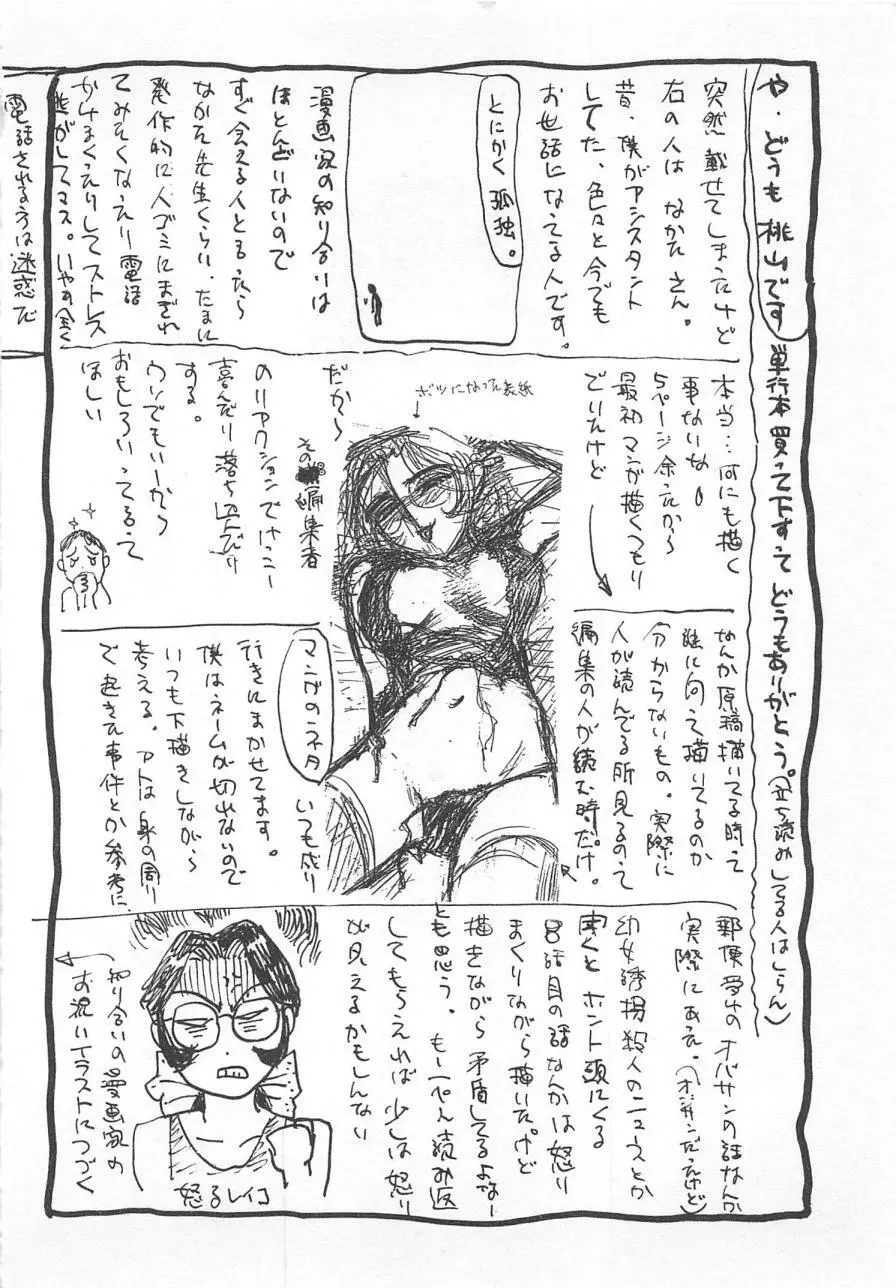 や、どうも 桃山です 単行本 買って下すって どうもありがとう。(立ち読みしてる人はしらん)
突然 載せてしまったけど
右の人は なかた さん。
昔、僕がアシスタント
してた、色々と今でも
お世話になってる人です。
とにかく 孤独。
漫画家の知り合いは
ほとんどいないので
すぐ会える人とゆったら
なかた先生くらい、たまに
発作的に人ゴミにまぎれ
てみたくなったり 電話
かけまくったりして ストレス
逃がしてマス。
電話される方は迷惑だ
本当…何にも描く
事ないな。
5ページ余ったから
最初マンガ描くつもり
でいたけど
なんか原稿描いてる時って
誰に向って描いてるのか
分からないもの。実際に
人が読んでる所見るのって
編集の人が読む時だけ。
ボツになった表紙
だから
その編集者
のリアクションでけっこー
喜んだり落ち込んだり
する。
ウソでもいーから
おもしろいってゆって
ほしい
マンガのネタ
いつも成り
行きにまかせてます。
僕はネームが切れないので
いつも下描きしながら
考える。アトは身の周り
で起きた事件とか参考に
郵便受けのオバサンの話なんか
実際にあった。(オジサンだったけど)
幼女誘拐殺人のニュースとか
聞くと ホント頭にくる
8話目の話なんかは怒り
まくりながら描いた。けど
描きながら矛盾してるよなー
とも思う。もーぺん読み返
してもらえれば少しは怒り
が見えるかもしんない
怒るレイコ
知り合いの漫画家の
お祝いイラストにつづく